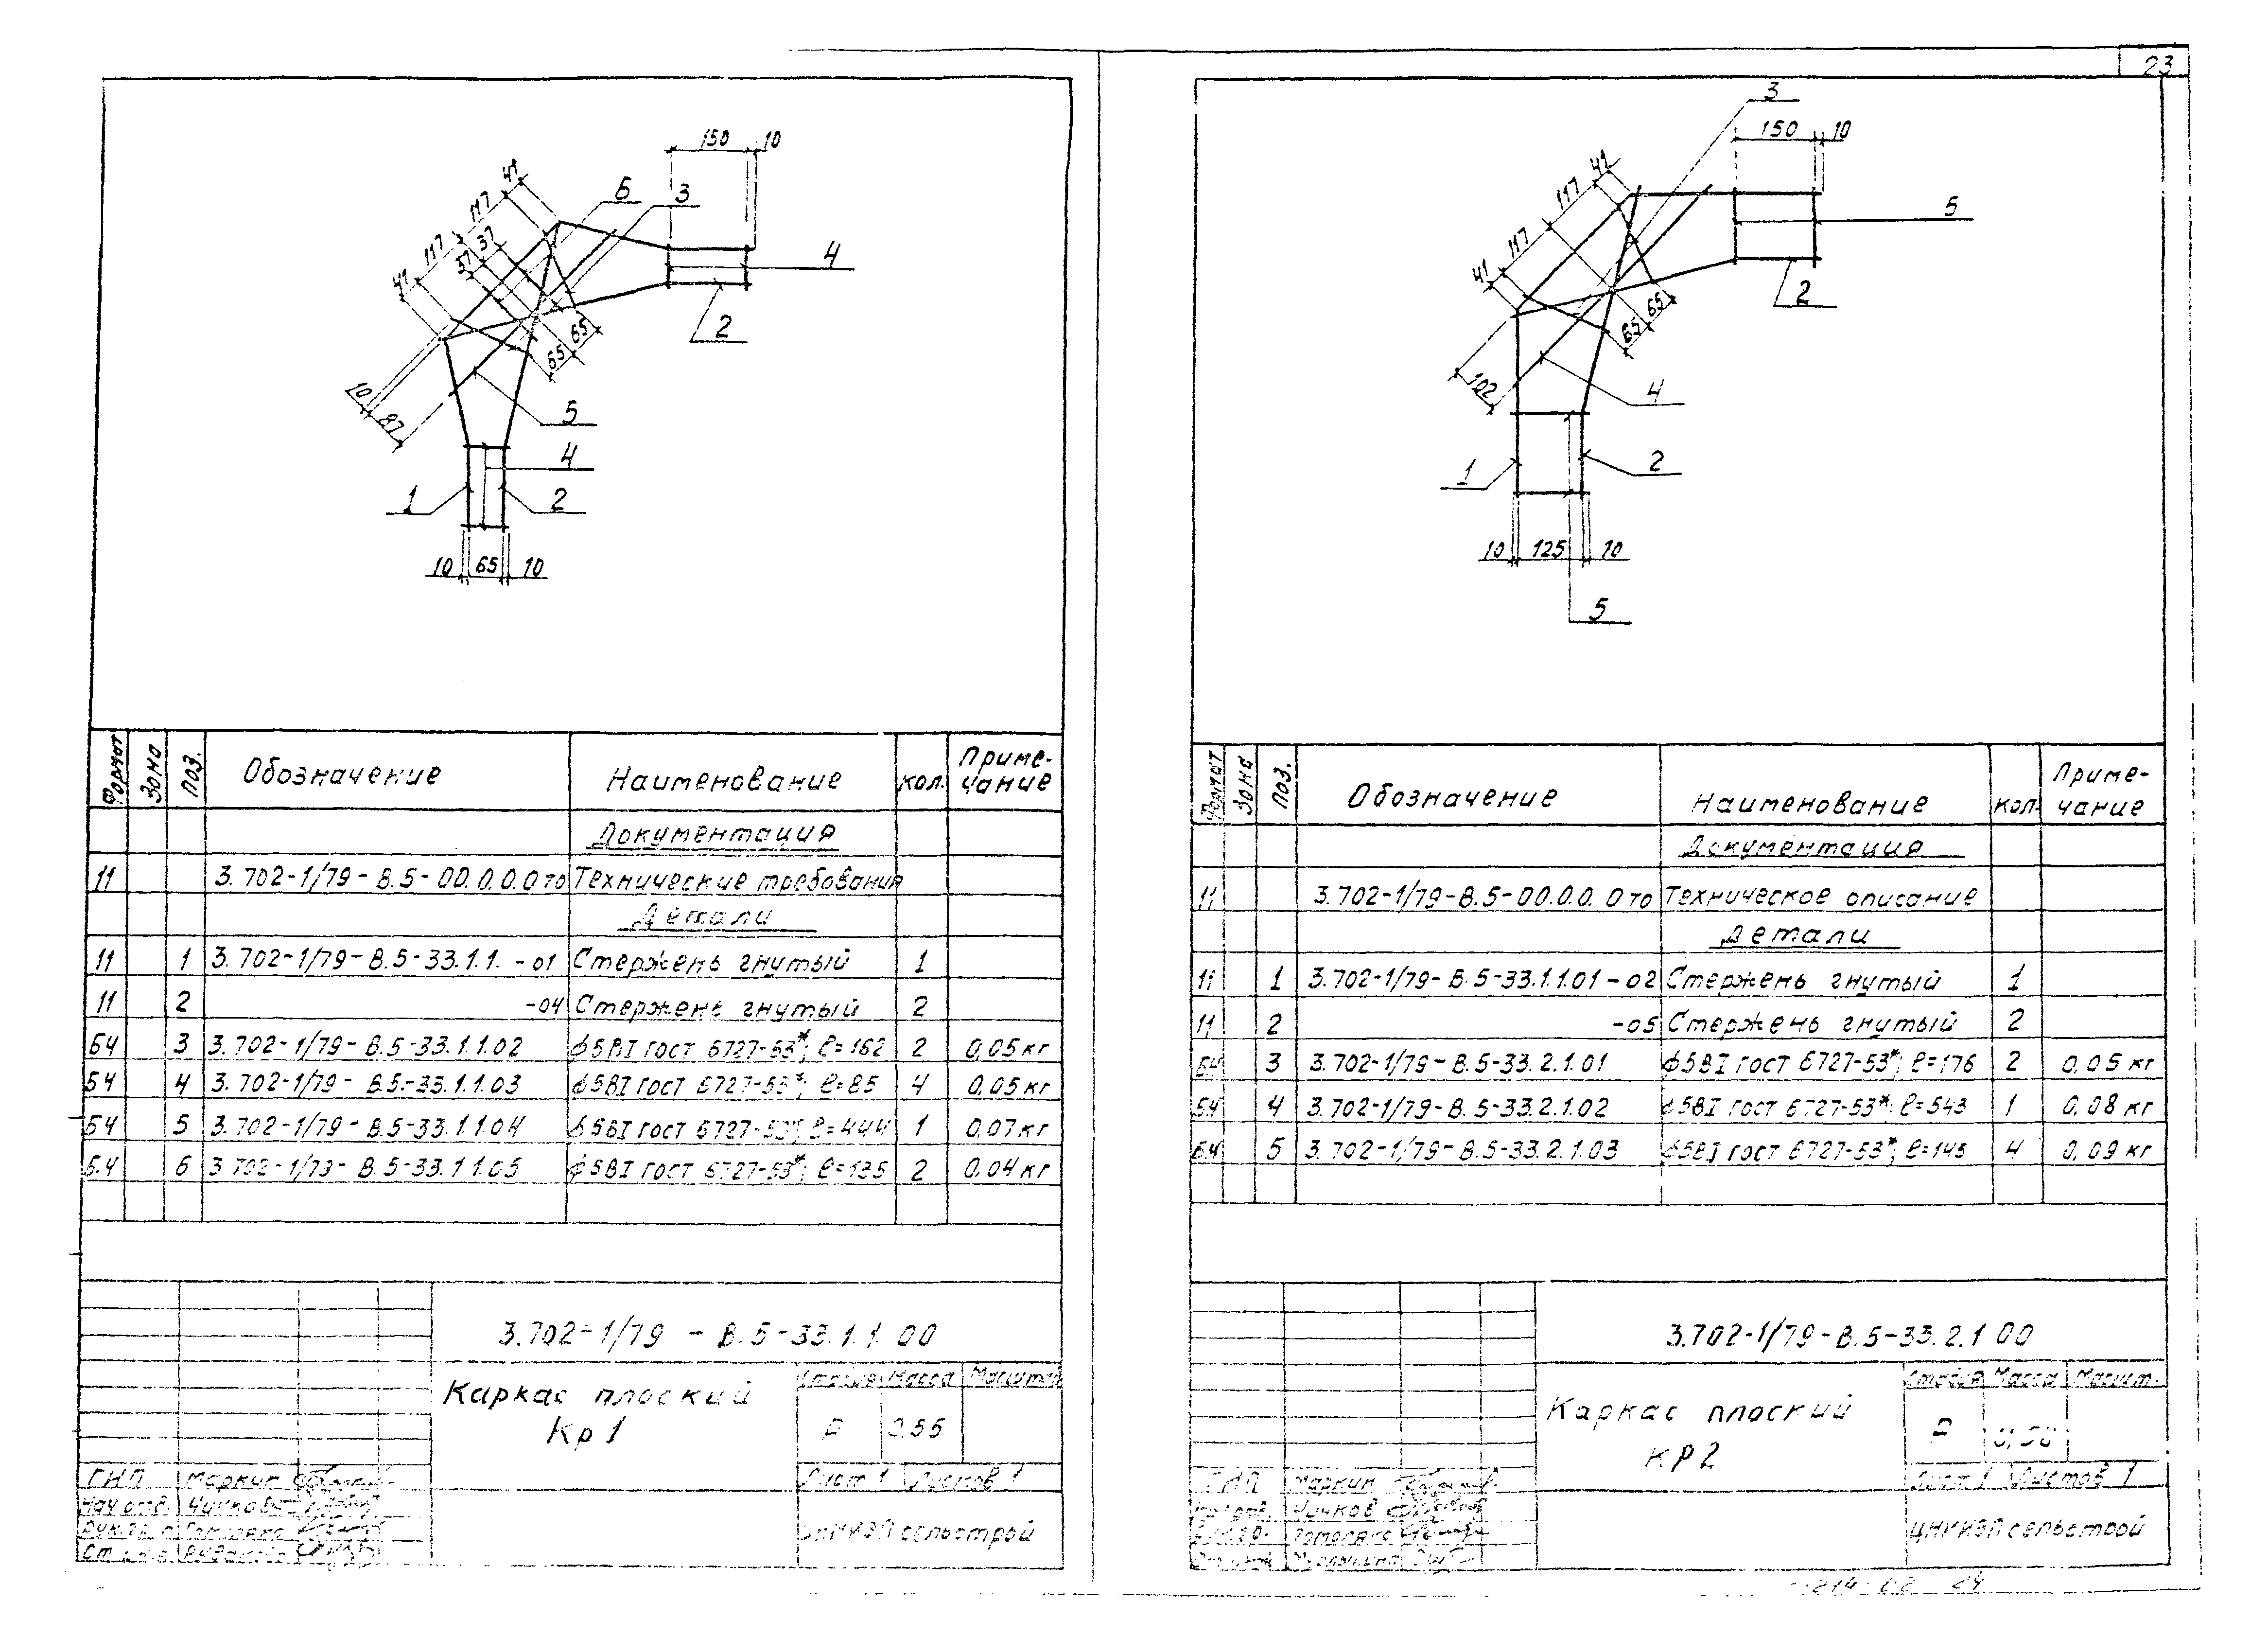 23
150 10
41
117
117
41
37
37
6
3
4
2
65
65
10
87
5
4
1
2
10 65 10
Формат
Зона
Поз.
Обозначение
Наименование
кол.
Приме-
чание
Документация
11 3.702-1/79-В.5-00.0.0.0 то Технические требования
Детали
11 1 3.702-1/79-В.5-33.1.1.-01 Стержень гнутый 1
11 2 -04 Стержень гнутый 2
БЧ 3 3.702-1/79-В.5-33.1.1.02 ф5ВI ГОСТ 6727-53*; ℓ=162 2 0,05 кг
БЧ 4 3.702-1/79-В.5-33.1.1.03 ф5ВI ГОСТ 6727-53*; ℓ=85 4 0,05 кг
БЧ 5 3.702-1/79-В.5-33.1.1.04 ф5ВI ГОСТ 6727-53*; ℓ=444 1 0,07 кг
БЧ 6 3.702-1/79-В.5-33.1.1.05 ф5ВI ГОСТ 6727-53*; ℓ=135 2 0.04 кг
3.702-1/79-В.5-33.1.1.00
Каркас плоский
Кр1
Стадия Масса Масштаб
Р 0.55
Лист 1 Листов 1
ГИП Маркин
Нач.отд. Чичков
ЦНИИЭПсельстрой
3
150 10
41
117
117
41
5
2
65
65
102
4
1
2
10 125 10
5
Формат
Зона
Поз.
Обозначение
Наименование
кол.
Приме-
чание
Документация
11 3.702-1/79-В.5-00.0.0.0 то Техническое описание
Детали
11 1 3.702-1/79-В.5-33.1.1.01-02 Стержень гнутый 1
11 2 -05 Стержень гнутый 2
БЧ 3 3.702-1/79-В.5-33.2.1.01 ф5ВI ГОСТ 6727-53*; ℓ=176 2 0,05 кг
БЧ 4 3.702-1/79-В.5-33.2.1.02 ф5ВI ГОСТ 6727-53*; ℓ=543 1 0,08 кг
БЧ 5 3.702-1/79-В.5-33.2.1.03 ф5ВI ГОСТ 6727-53*; ℓ=145 4 0,09 кг
3.702-1/79-В.5-33.2.1 00
Каркас плоский
КР2
Стадия Масса Масшт.
Р
Лист 1 Листов 1
ГИП Маркин
Нач.отд. Чичков
ЦНИИЭПсельстрой